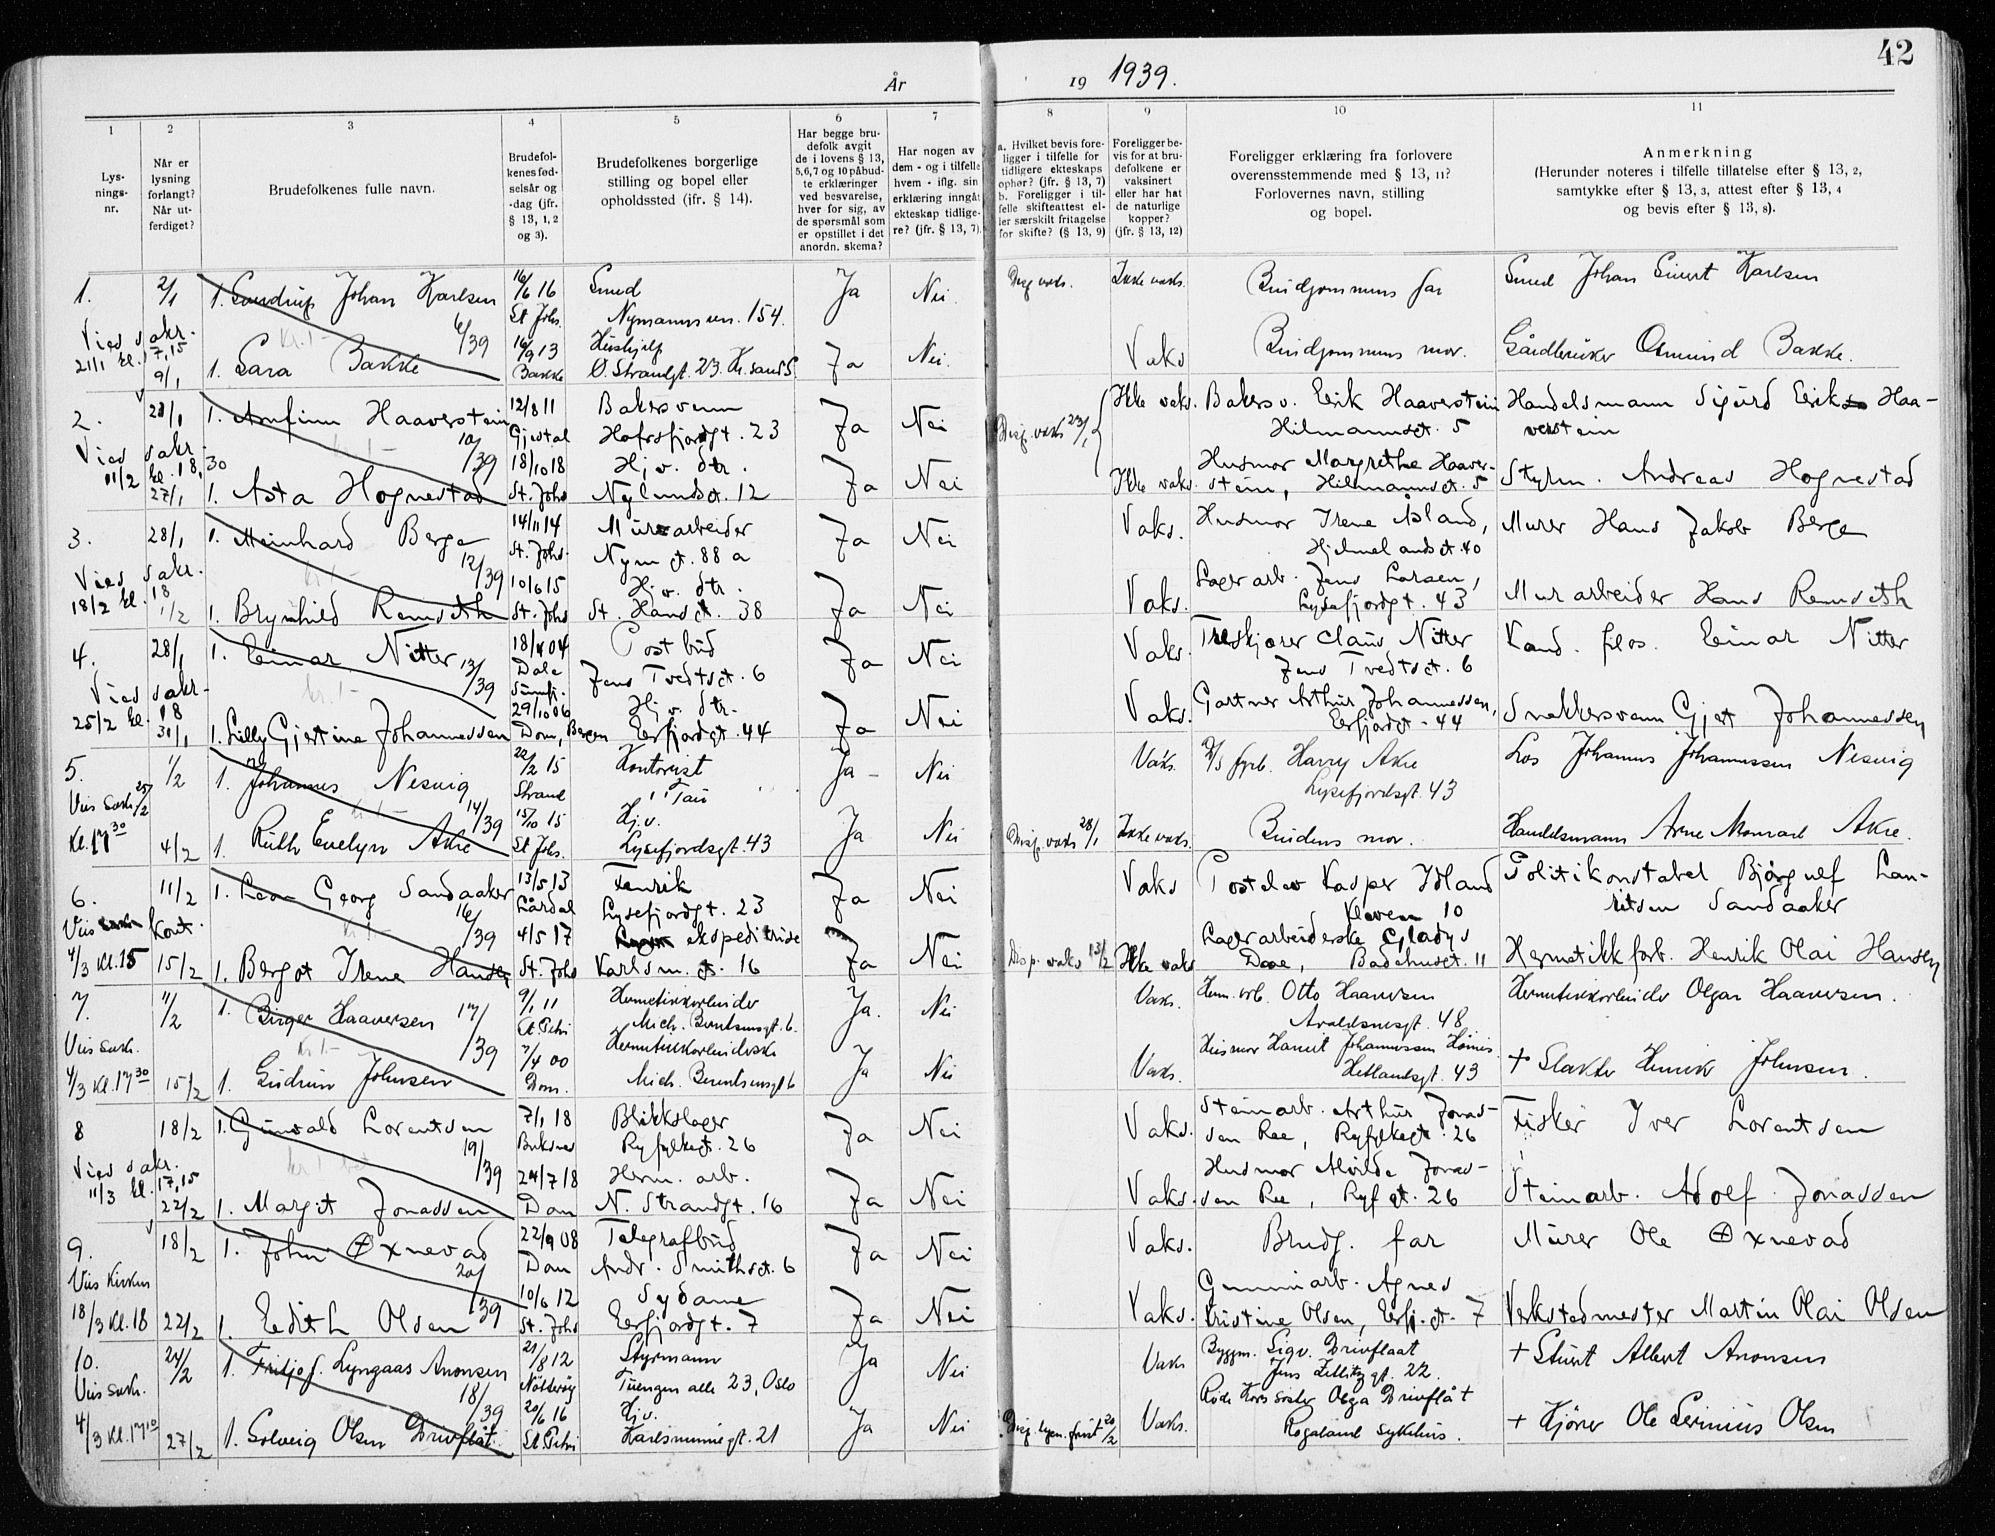 42
År 19 1939.
1
2
3
4
5
6
7
8
9
10
11
Lys-
nings-
nr.
Når er
lysning
forlangt?
Når ut-
ferdiget?
Brudefolkenes fulle navn.
Brudefol-
kenes fød-
selsår og
-dag (jfr.
§ 13, 1, 2
og 3).
Brudefolkenes borgerlige
stilling og bopel eller
opholdssted (ifr. § 14).
Har begge bru-
defolk avgit
de i lovens § 13,
5,6,7 og 10 påbud-
te erklæringer
ved besvarelse,
hver for sig, av
de spørsmål som
er opstillet i det
anordn. skema?
Har nogen av
dem - og i tilfelle
hvem - iflg. sin
erklæring inngåt
ekteskap tidlige-
re? (jfr. § 13, 7).
a. Hvilket bevis fore-
ligger i tilfelle for
tidligere ekteskaps
ophør? (jfr. § 13, 7)
b. Foreligger i til-
felle skifteattest el-
ler særskilt fritagelse
for skifte? (§ 13, 9)
Foreligger be-
vis for at bru-
defolkene er
vaksinert
eller har hat
de naturlige
kopper?
(jfr. § 13, 12)
Foreligger erklæring fra forlovere
overensstemmende med § 13, 11?
Forlovernes navn, stilling
og bopel.
Anmerkning
(Herunder noteres i tilfelle tillatelse efter § 13, 2,
samtykke efter § 13, 3, attest efter § 13, 4
og bevis efter § 13, 8).
1. 2/1 1. Johan Karlsen 16/6 16 Smed Ja Nei. Disp vaks. Ikke vaks. Brudgommens far Smed Johan Sivert Karlsen
St Johs. Nymannsvn. 154.
Vies sakr. 6/39
21/1 kl. 17,15 16/9 13 Hushjelp
9/1 1. Sara Bakke Bakke Ø. Strandgt. 23. Kr. sand S. Ja Nei. Vaks Brudgommens mor. Gårdbruker Osmund Bakke.
2. 21/1 1. Arnfinn Haaverstein 12/8 11 Bakersvenn Ja Nei Disp. vaks 23/1 Ikke vaks. Bakersv. Erik Haaverstein Handelsmann Sigurd Erik Haa-
10/39 Gjestal Hafrsfjordgt. 23 Hilmannsgt. 5 verstein
Vies sakr. 18/10 18 Hj. v. dtr. Husmor Margrethe Haaver-
11/2 kl. 18,30
27/1 1. Asta Hognestad St. Johs Nylundsgt. 12 Ja Nei Ikke vaks. stein, Hilmannsgt. 5 Styrm. Andreas Hognestad
3. 28/1 1. Meinhard Berge 14/11 14 Murearbeider Ja Nei Vaks. Husmor Irene Åsland, Murer Hans Jakob Berge
12/39 St. Johs. Nym gt. 88 a Hjelmelandsgt. 40
Vies sakr. 10/6 15 Hj. v. dtr. Lagerarb. Jens Larsen,
18/2 kl. 18
1/2 1. Brynhild Remseth St. Johs St. Hansgt. 38 Ja Nei Vaks. Lysefjordgt. 43 Murarbeider Hans Remseth
4. 28/1 1. Einar Nitter 13/39 18/4 04 Postbud Ja Nei Vaks. Treskjærer Claus Nitter Kand. filos. Einar Nitter
Dale Sunnfj. Jens Tvedtsgt. 6 Jens Tvedtsgt. 6
Vies sakr. 29/10 06 Hj. v. dtr. Gartner Arthur Johannessen,
25/2 kl. 18
31/1 1. Lilly Gjertine Johannessen Dom, Bergen Erfjordgt. 44 Ja Nei Vaks. Erfjordgt. 44 Snekkersvenn Gjert Johannessen
5. 1/2 1. Johannes Nesvig 22/2 15 Kontorist Ja Nei Vaks. D/S fyrb. Harry Akre Los Johannes Johannessen Nesvig
Vies sakr. 25/2 14/39 Strand Tau Lysefjordsgt. 43
Kl. 17 30 15/10 15 Hj. v.
4/2 1. Ruth Evelyn Akre St. Johs. Lysefjordsgt. 43 Ja Nei Disp. vaks 28/1 Ikke vaks. Brudens mor. Handelsmann Arne Monrad Akre.
6. 11/2 1. Georg Sandaaker 13/5 13 Fenrik Ja Nei Vaks Postelev Kasper Idland Politikonstabel Bjørgulf Lau-
16/39 Lårdal Lysefjordgt. 23 Kleven 10 ritsen Sandaaker
Vies kont. 4/5 17 ekspeditrise Lagerarbeiderske Gladys
4/3 kl. 15 15/2 1. Bergot Irene Hansen St. Johs Karlsm. gt. 16 Ja Nei Disp. vaks 13/2 Ikke vaks Badehusgt. 11 Hermetikkfarb. Henrik Olai Hansen
7. 11/2 1. Birger Haaversen 17/39 9/1 11 Hermetikkarbeider Ja. Nei Vaks. Herm. arb. Otto Haaversen Hermetikkarbeider Olgar Haaversen.
St. Petri Mich. Berentsensgt. 6. Avaldsnesgt. 48
Vies sakr. 7/4 00 Hermetikkarbeiderske Husmor Harriet Johannessen
4/3 kl. 17 30 15/2 1. Gudrun Johnsen Dom. Mich. Berentsensgt 6 Ja Nei Vaks. Hetlandsgt. 43 + Slakter Henrik Johnsen.
8 18/2 1. Gunvald Lorentsen 7/1 18 Blikkslager Ja Nei Vaks. Steinarb. Arthur Jonas- Fisker Iver Lorentsen
19/39 Buksnes Ryfylkegt. 26 sen Ree, Ryfylkegt. 26
Vies sakr. 24/7 18 Herm. arb. Husmor Alvilde Jonas-
11/3 kl. 17,15
22/2 1. Margit Jonassen Dom N. Strandgt. 16 Ja Nei Vaks. sen Ree, Ryf gt. 26 Steinarb. Adolf Jonassen
9. 18/2 1. John Øxnevad 22/9 08 Telegrafbud Ja Nei Vaks. Brudg. far Murer Ole Øxnevad
20/39 Dom Andr. Smithsgt. 6
Vies Kirken 10/6 12 Sydame Gummiarb. Agnes
18/3 kl. 18 22/2 1. Edith Olsen St. Johs Erfjordgt. 7 Ja Nei Vaks. Kristine Olsen, Erfj. gt. 7 Verkstedmester Martin Olai Olsen
10. 24/2 1. Fritjof Lyngaas Aronsen 21/8 12 Styrmann Ja Nei Vaks Byggm. Sigv. Drivflaat + Stuert Albert Aronsen
Vies sakr. 18/39 Nötterøy Tuengen alle 23, Oslo Jens Zetlitzgt. 22.
20/6 16 Hj. v. Røde Kors søster Olga Drivflåt
4/3 kl. 17 10 27/2 1. Solveig Olsen Drivflåt. St. Petri Karlsminnegt. 21 Ja Nei Disp. lysn. frist 20/2 Vaks. Rogaland sykehus. + Kjører Ole Serinius Olsen